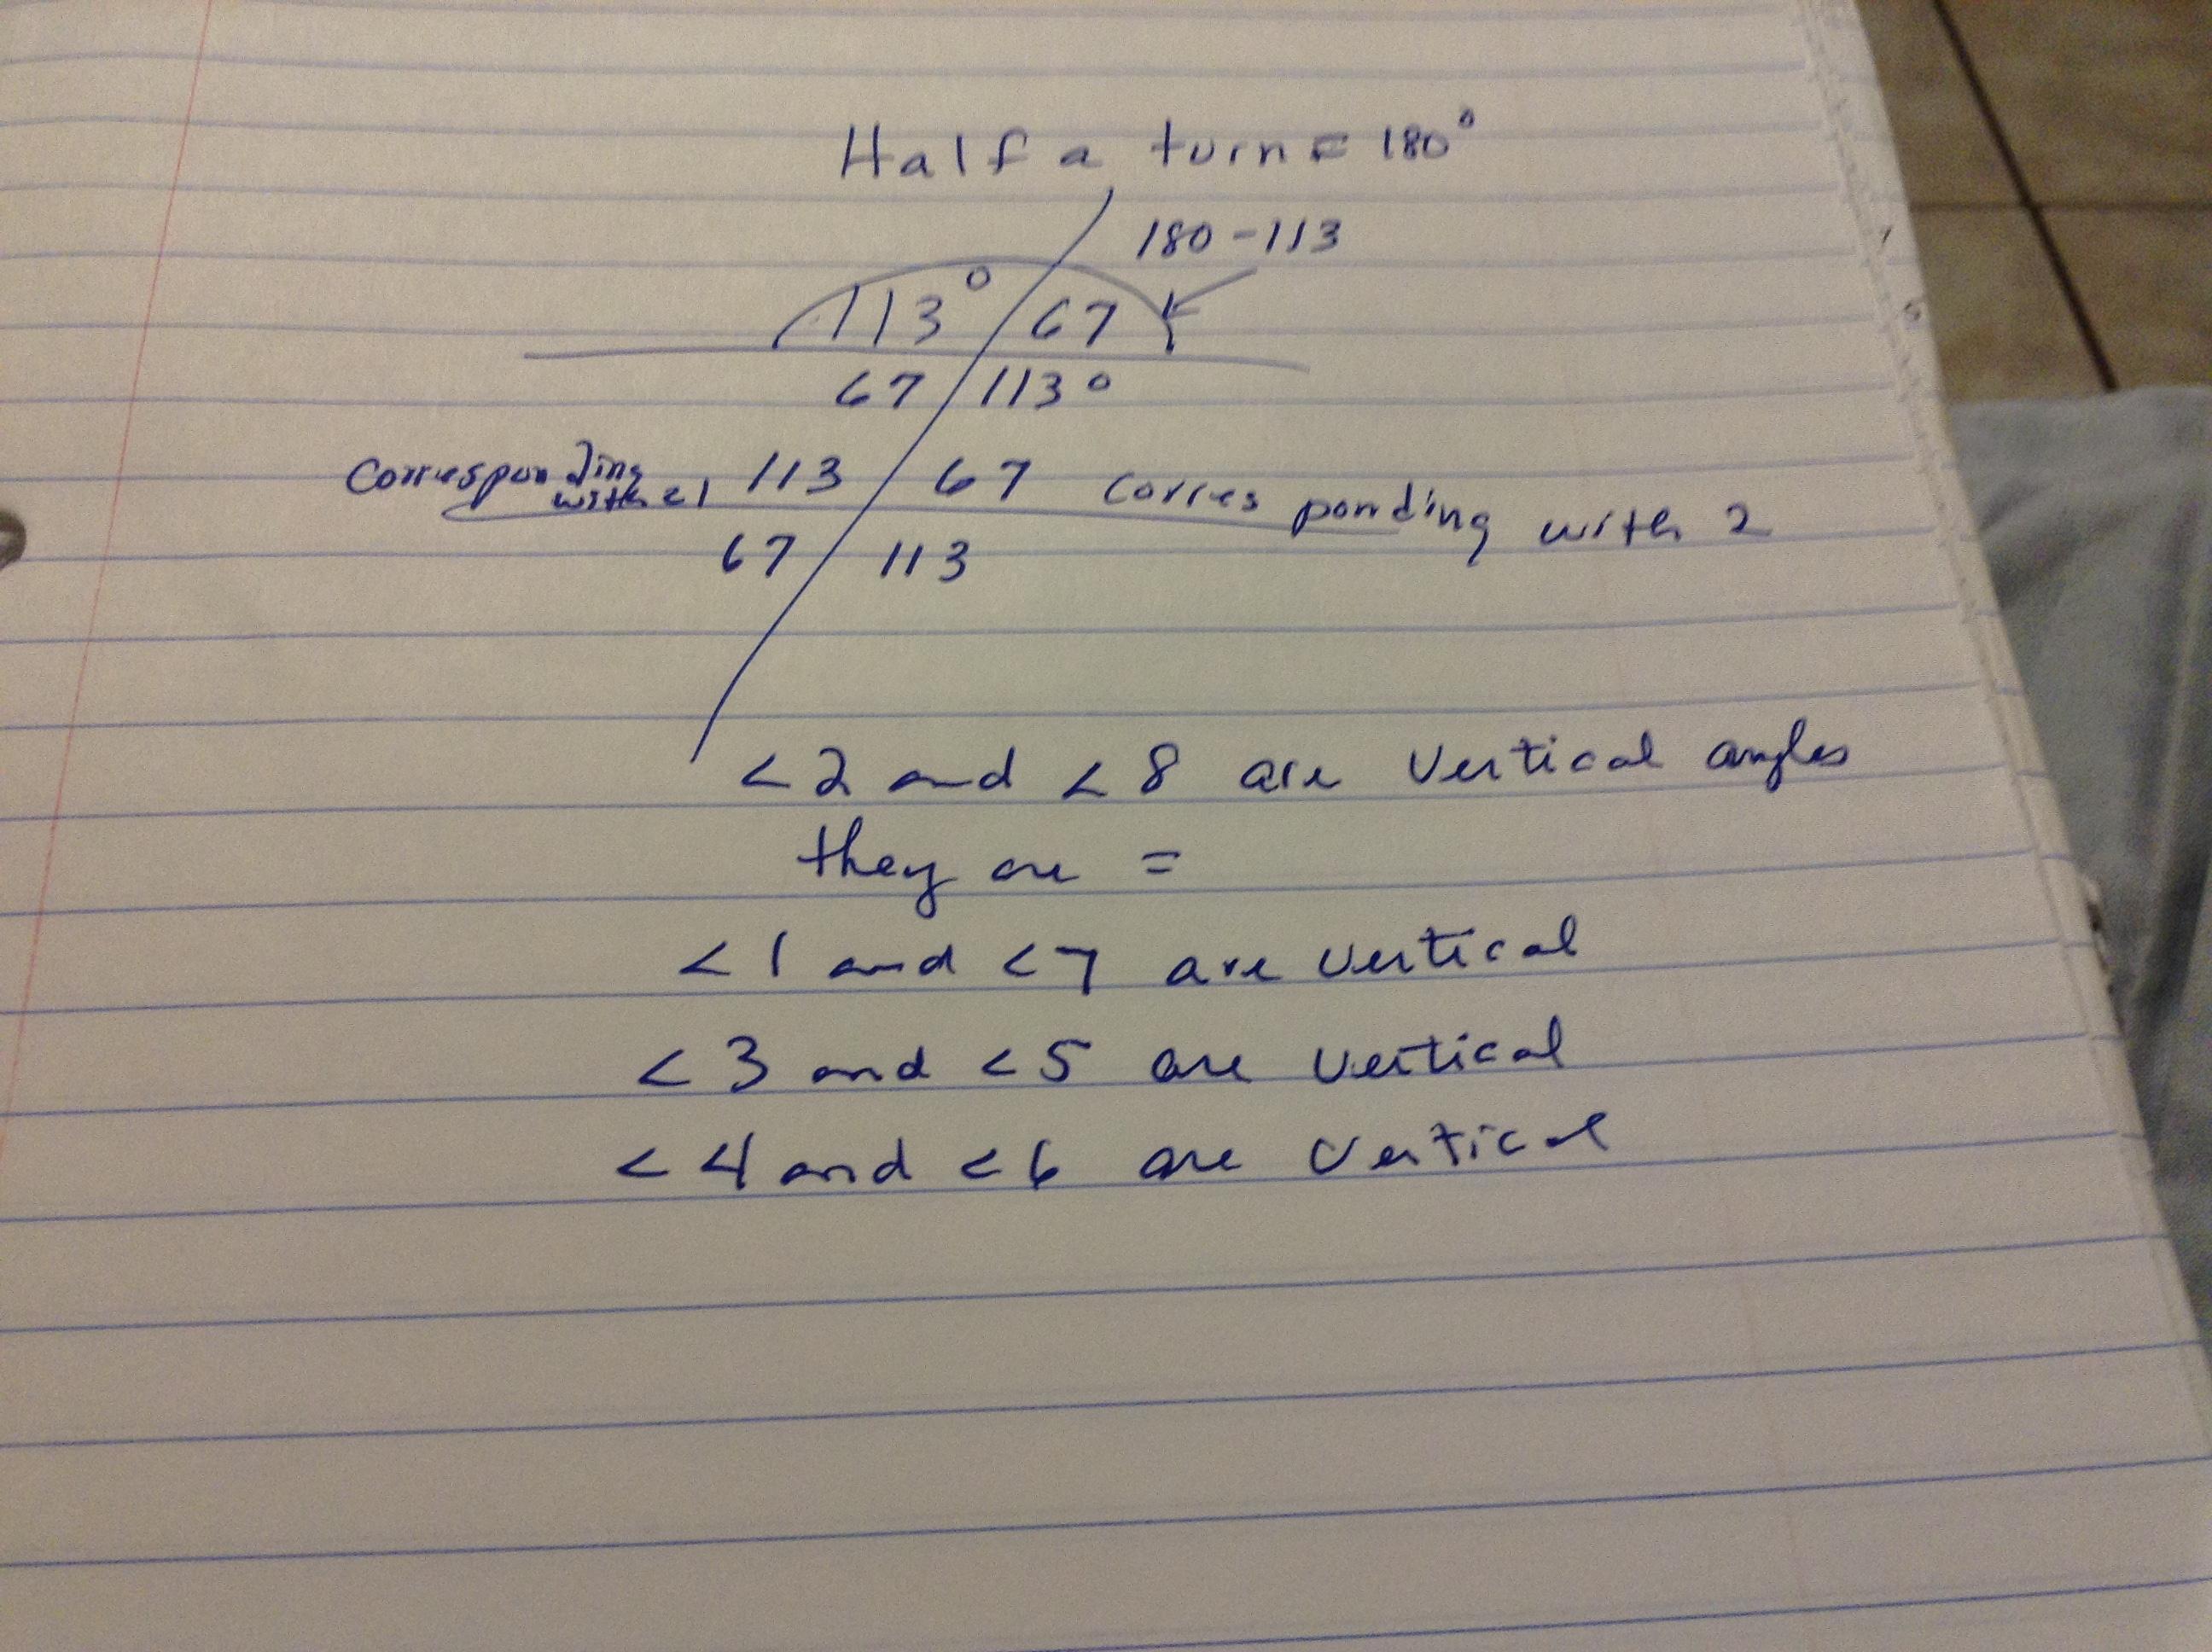 Half a turn = 180°
180-113
113° 67
67 113°
Corresponding with <1 113 67 corresponding with 2
67 113
<2 and <8 are vertical angles
they are =
<1 and <7 are vertical
<3 and <5 are vertical
<4 and <6 are vertical